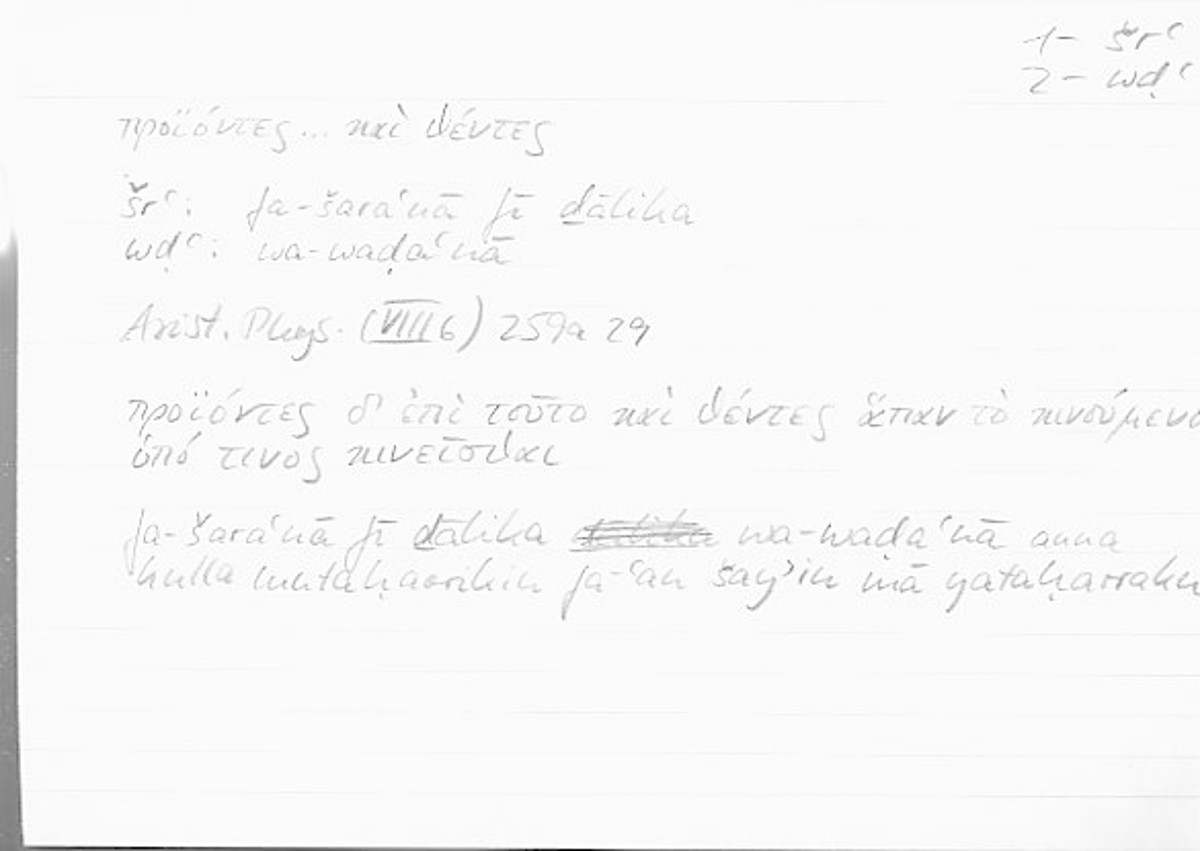 1 – šrʿ
2 – wḍʿ
προϊόντες ... καὶ θέντες
šrʿ: fa-šaraʿnā fī ḏālika
wḍʿ: wa-waḍaʿnā
Arist. Phys. (VIII 6) 259a 29
προϊόντες δ' ἐπὶ τοῦτο καὶ θέντες ἅπαν τὸ κινούμενο
ὑπό τινος κινεῖσθαι
fa-šaraʿnā fī ḏālika wa-waḍaʿnā anna
kulla mutaḥarrikin fa-ʿan šayʾin mā yataḥarraku